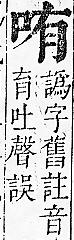 哊
譌字舊註音
育吐聲誤